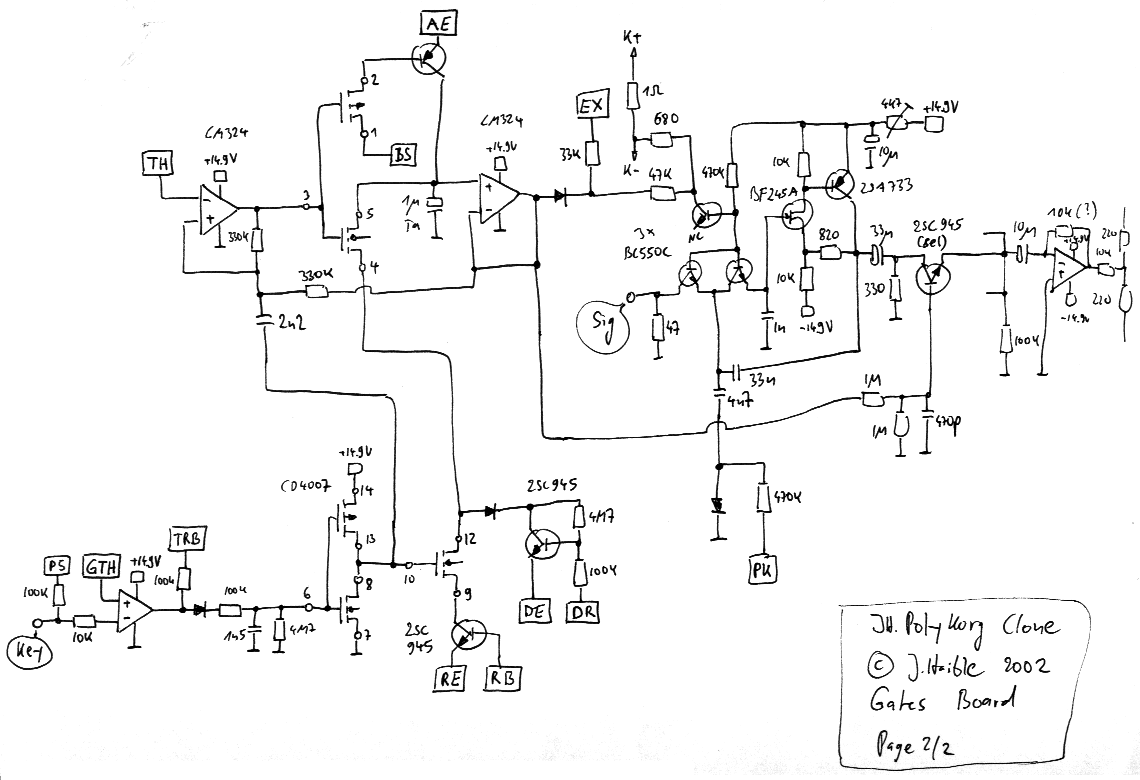 AE
K+
2
1Ω
EX
447
+14.9V
LM324
680
10µ
TH
+14.9V
1
BS
LM324
+14.9V
33K
K-
10K
47K
470K
2SA733
BF245A
3
5
1µ
Ta
NC
3x
BC550C
820
33µ
2SC945
(sel)
10µ
10K(?)
+14.9V
220
10K
330K
4
330K
10K
330
-14.9V
220
-14.9V
Sig
47
1n
100K
2n2
33n
4n7
1M
1M
470p
+14.9V
CD4007
14
2SC945
470K
13
12
4M7
PS
GTH
+14.9V
TRB
100K
100K
100K
6
8
10
100K
PK
10K
1n5
4M7
7
9
DE
DR
Key
2SC
945
RE
RB
JH. PolyKorg Clone
© J.Haible 2002
Gates Board
Page 2/2